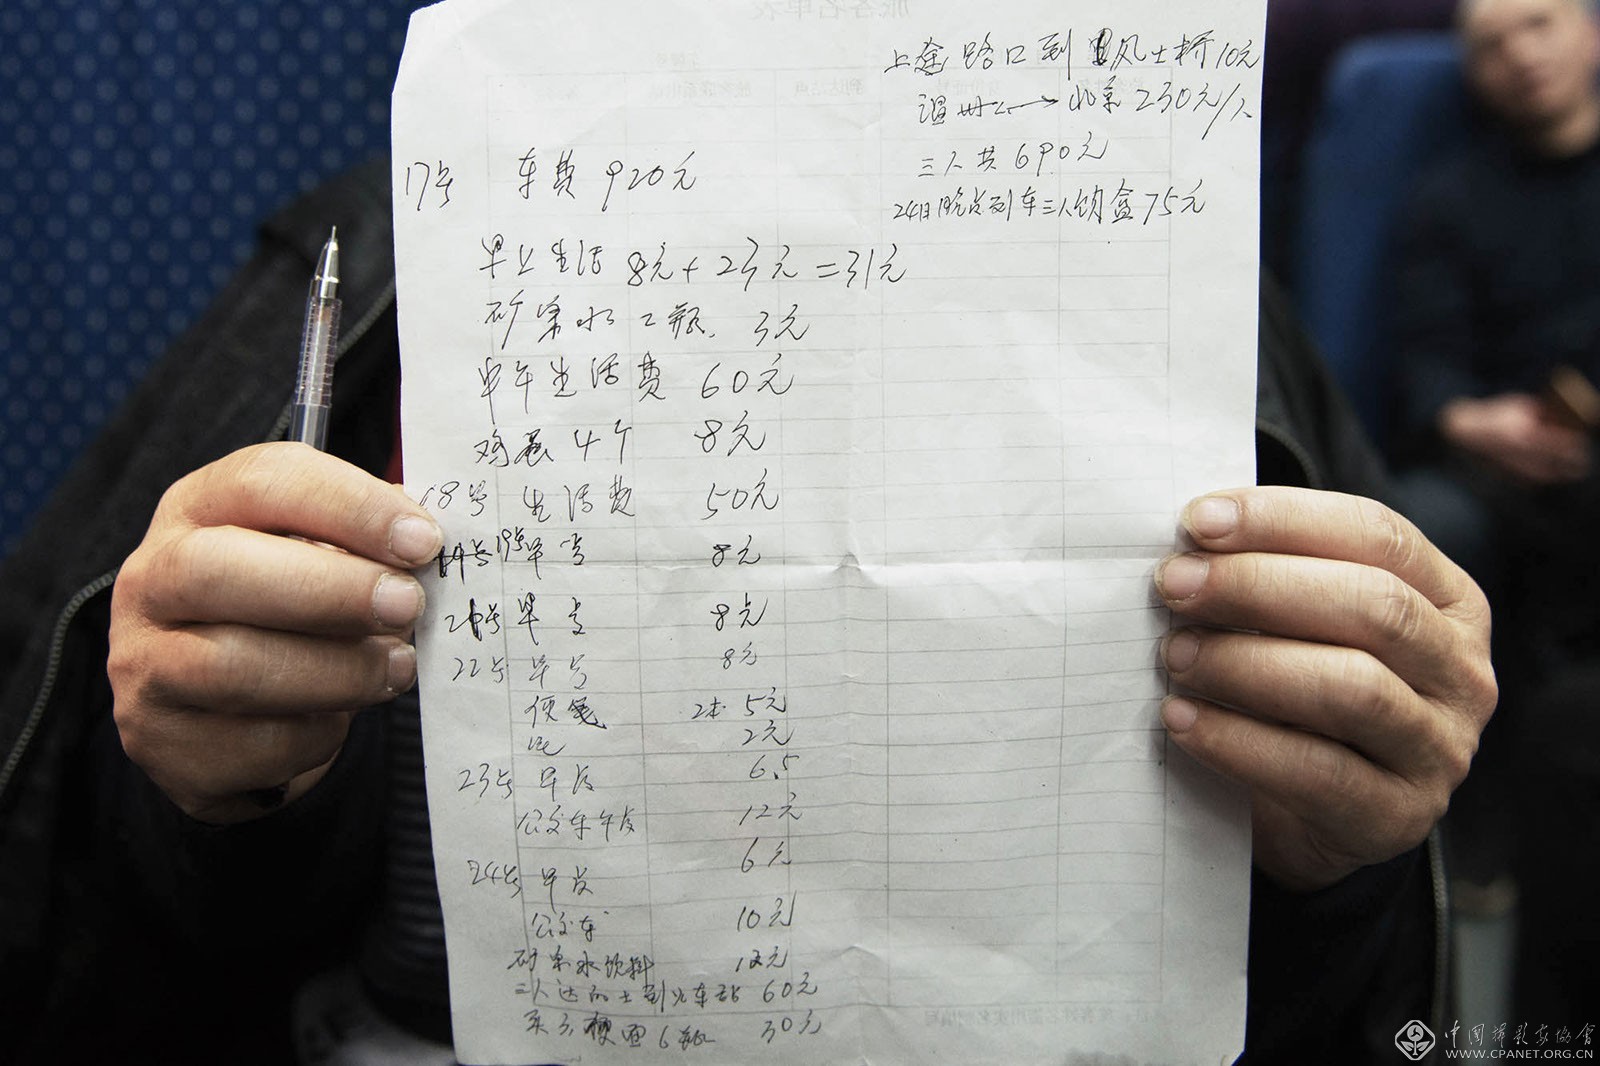 17号 车费 920元
早上生活 8元+23元=31元
矿泉水2瓶. 3元
中午生活费 60元
鸡蛋4个 8元
18号 生活费 50元
19号 早点 8元
21号 早点 8元
22号 早点 8元
便笺 2本 5元
2元
23号 早点 6.5
公交车午点 12元
24号 早点 6元
公交车 10元
矿泉水饮料 12元
三人达的士到火车站 60元
面6 30元
路口到 风士桥10元
温州 北京 230元/人
三人共690元
24日晚点到车三人饭盒75元
旅客名单表
中国摄影家协会
WWW.CPANET.ORG.CN